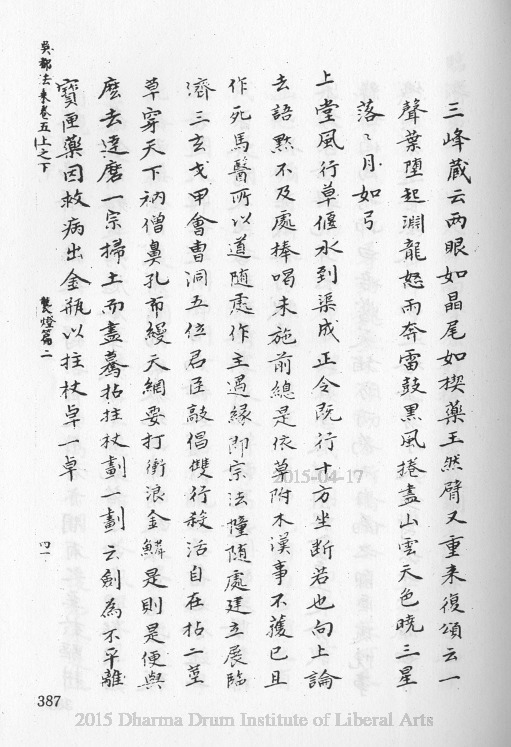 三峰蔵云兩眼如晶尾如揳藥王然臂又重来復頌云一
聲葉堕起淵龍怒雨奔雷鼓黒風捲盡山雲天色曉三星
落〻月如弓
上堂風行草偃水到渠成正令既行十方坐斷若也向上論
去語黙不及處捧喝未施前總是依草附木漢事不獲已且
作死馬醫所以道随處作主遇緣即宗法幢随處建立展臨
濟三玄戈甲會曹洞五位君臣敲倡雙行殺活自在拈一莖
草穿天下衲僧鼻孔布縵天網要打衝浪金鱗是則是便與
麽去達磨一宗掃土而盡驀拈拄杖劃一劃云劍為不平離
寶匣藥因救病出金瓶以拄杖卓一卓
吳都法乘卷五上之下
焚燈篇二
四一
387
2015-04-17
2015 Dharma Drum Institute of Liberal Arts